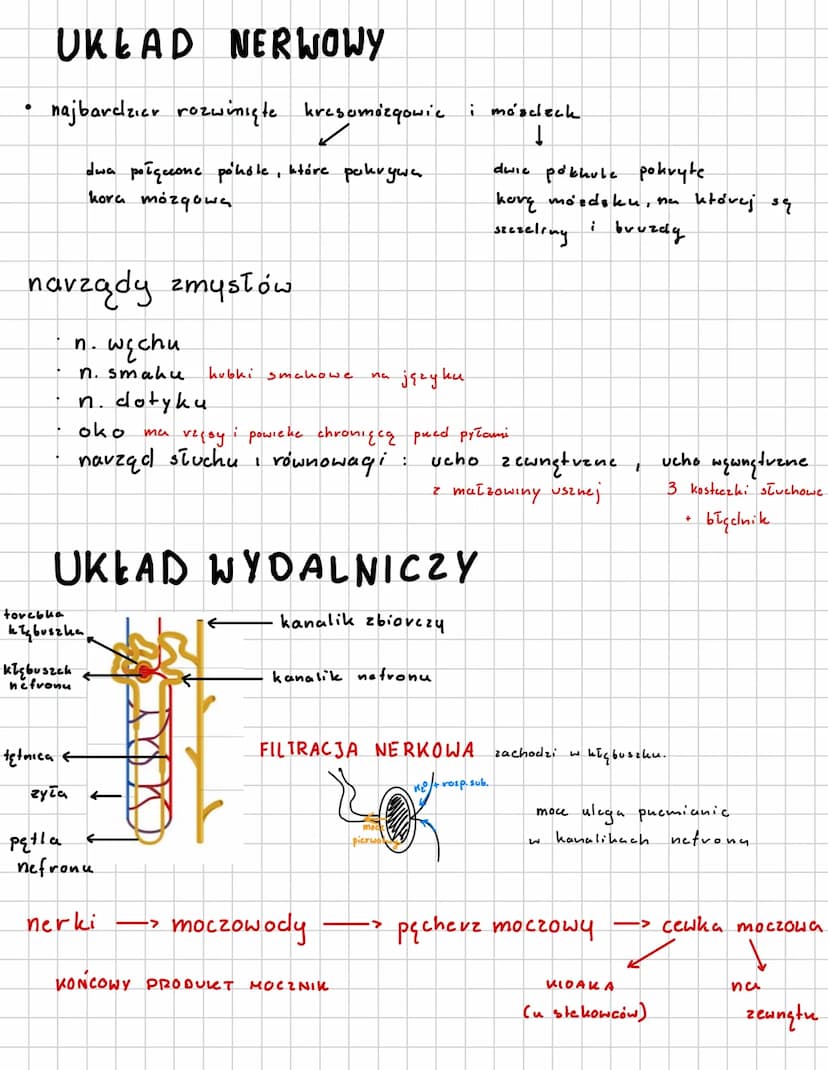 UKŁAD NERWOWY
• najbardziej rozwinięte kresomózgowie i móżdżek
dwa połączone półkule, które pokrywa
kora mózgowa
dwie półkule pokryte
korą móżdżku, na której są
szczeliny i bruzdy
narządy zmysłów
· n. węchu
· n. smaku kubki smakowe na języku
· n. dotyku
· oko ma rzęsy i powieke chroniącą przed pyłami
· narząd słuchu i równowagi : ucho zewnętrzne , ucho wewnętrzne
z małżowiny usznej
3 kosteczki słuchowe
+ błędnik
UKŁAD WYDALNICZY
torebka
kłębuszka
kanalik zbiorczy
kłębuszek
nefronu
kanalik nefronu
FILTRACJA NERKOWA zachodzi w kłębuszku.
tętnica
żyła
pętla
nefronu
H2O + rosp. sub.
mocz
pierwotny
mocz ulega przemianie
w kanalikach nefronu
nerki —> moczowody —> pęcherz moczowy —> cewka moczowa
KOŃCOWY PRODUKT MOCZNIK
KLOAKA
(u stekowców)
na
zewnątrz